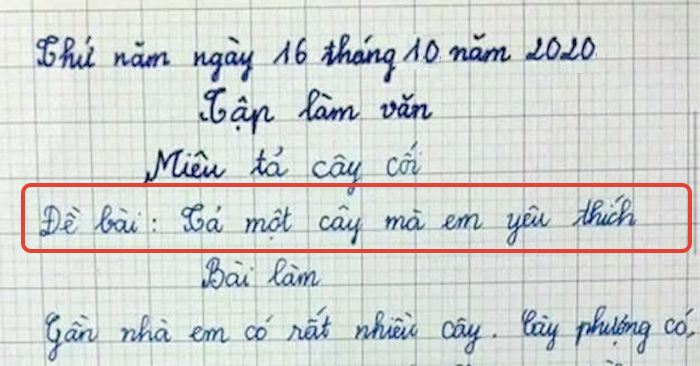 Thứ năm ngày 16 tháng 10 năm 2020
Tập làm văn
Miêu tả cây cối
Đề bài: Tả một cây mà em yêu thích
Bài làm
Gần nhà em có rất nhiều cây. Cây phượng có,